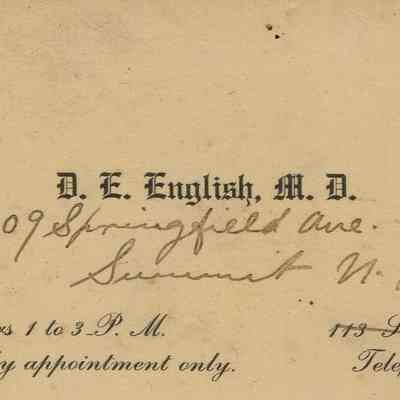 D. E. English, M. D.
09 Springfield Ave.
Summit N.
1 to 3 P. M.
113
appointment only.